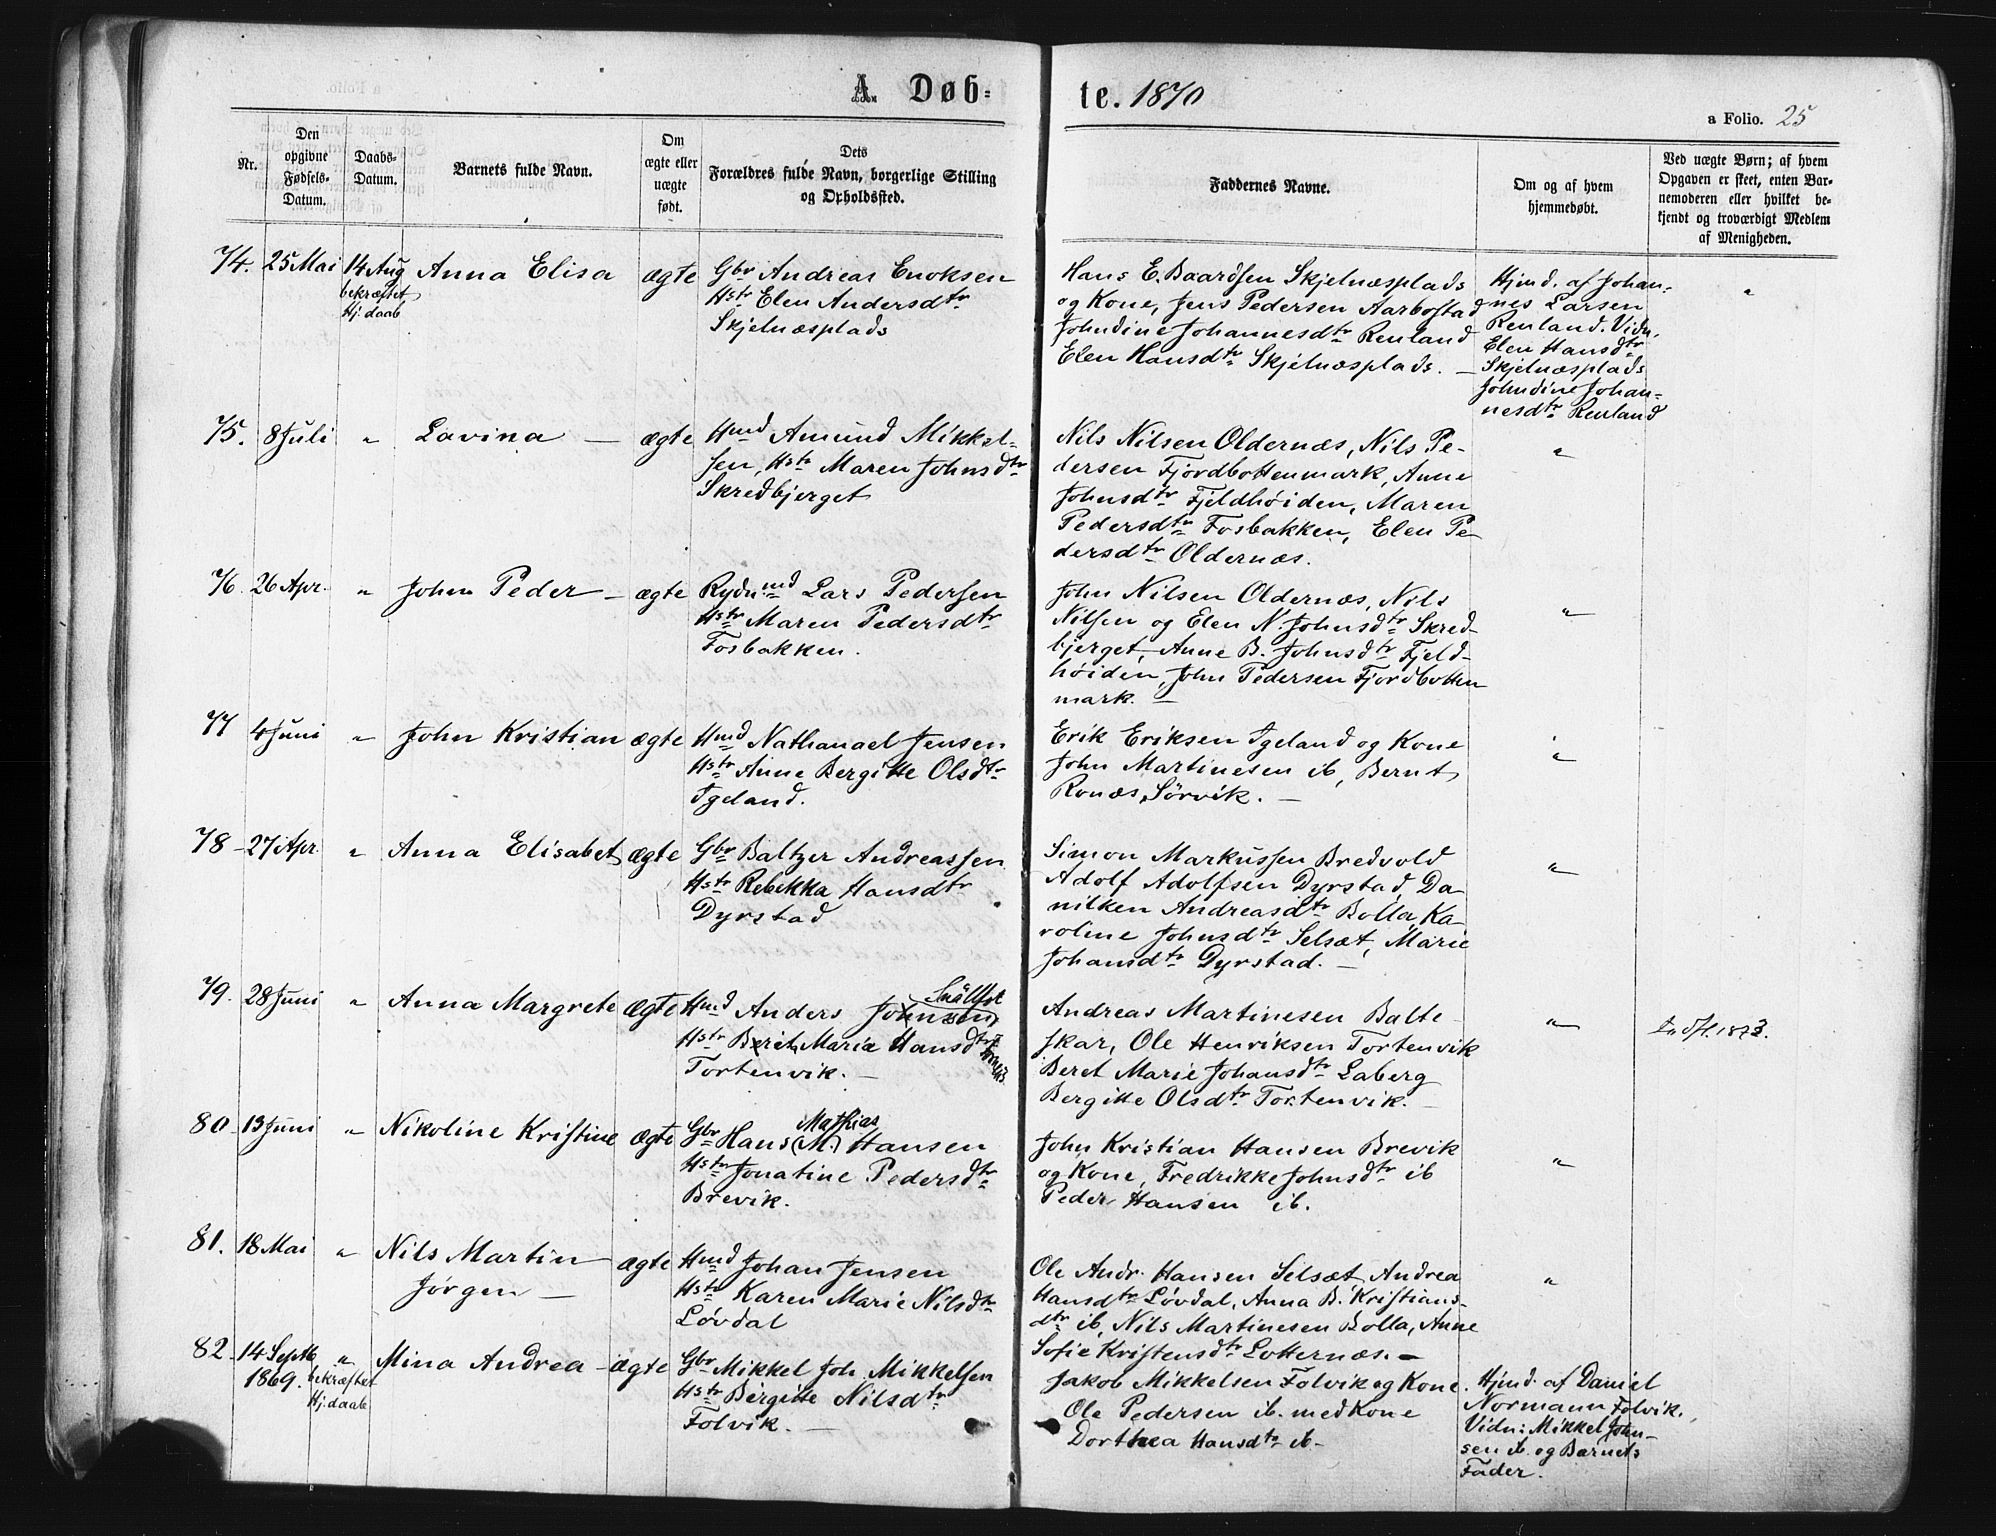 A Døb-
te. 1870
a Folio. 25
Nr.
Den
opgivne
Fødsels-
Datum.
Daabs-
Datum.
Barnets fulde Navn.
Om
ægte eller
uægte
født.
Dets
Forældres fulde Navn, borgerlige Stilling
og Opholdssted.
Faddernes Navne.
Om og af hvem
hjemmedøbt.
Ved uægte Børn; af hvem
Opgaven er skeet, enten Bar-
nemoderen eller hvilket be-
kjendt og troværdigt Medlem
af Menigheden.
74. 25 Mai 14 Aug Anna Elisa ægte
bekræftet
Hj: daab
Gbr Andreas Enoksen
Hstr Elen Andersdtr
Skjelnæsplads
Hans E. Baardsen Skjelnæsplads
og Kone, Jens Pedersen Aarbostad
Johndine Johannesdtr Renland
Elen Hansdtr Skjelnæsplads. –
Hjmd. af Johan-
nes Larsen
Renland. Vidn.
Elen Hansdtr
Skjelnæsplads
Johndine Johan-
nesdtr Renland
"
75. 8 Juli " Lavina – ægte
Hmd Amund Mikkel-
sen, Hstr Maren Johnsdtr
Skredbjerget
Nils Nilsen Oldernæs, Nils Pe-
dersen Fjordbottenmark, Anne
Johnsdtr Fjeldhøiden, Maren
Pedersdtr Fosbakken, Elen Pe-
dersdtr Oldernæs.
"
76. 26 Apr. " John Peder – ægte
Rydnmd Lars Pedersen
Hstr Maren Pedersdtr
Fosbakken.
John Nilsen Oldernæs, Nils
Nilsen og Elen N. Johnsdtr Skred-
bjerget, Anne B. Johnsdtr Fjeld-
høiden, John Pedersen Fjordbotten
mark. –
"
77 4 Juni " John Kristian ægte
Hmd Nathanael Jensen
Hstr Anne Bergitte Olsdtr
Igeland.
Erik Eriksen Igeland og Kone
John Martinesen ib, Bernt
Ronæs, Sørvik. –
"
78 – 27 Apr. " Anna Elisabet ægte
Gbr Baltzer Andreassen
Hstr Rebekka Hansdtr
Dyrstad
Simon Markussen Bredvold
Adolf Adolfsen Dyrstad, Da-
nilken Andreasdtr Bolla, Ka-
roline Johnsdtr Selsæt, Marie
Johansdtr Dyrstad. –
"
79. 28 Juni " Anna Margrete ægte
Hmd Anders Johnsen
Hstr Berit Maria Hansdtr
Tortenvik. –
Andreas Martinesen Balte-
skar, Ole Henriksen Tortenvik
Beret Marie Johansdtr Laberg
Bergitte Olsdtr Tortenvik. –
"
1873.
80. 13 Juni " Nikoline Kristine ægte
Mathias
Gbr Hans (M.) Hansen
Hstr Jonatine Pedersdtr
Brevik.
John Kristian Hansen Brevik
og Kone, Fredrikke Johnsdtr ib
Peder Hansen ib.
"
81. 18 Mai " Nils Martin
Jørgen – ægte
Hmd Johan Jensen
Hstr Karen Marie Nilsdtr
Løvdal
Ole Andr. Hansen Selsæt, Andrea
Hansdtr Løvdal, Anna B. Kristians-
dtr ib, Nils Martinesen Bolla, Anne
Sofie Kristensdtr Lotternæs. –
"
82. 14 Septb " Mina Andrea – ægte
1869. bekræftet
Hj: daab
Gbr Mikkel Joh. Mikkelsen
Hstr Bergitte Nilsdtr
Folvik. –
Jakob Mikkelsen Folvik og Kone.
Ole Pedersen ib. med Kone
Dorthea Hansdtr ib –
Hjmd. af Daniel
Normann Folvik.
Vidn: Mikkel John-
sen ib. og Barnets
Fader.